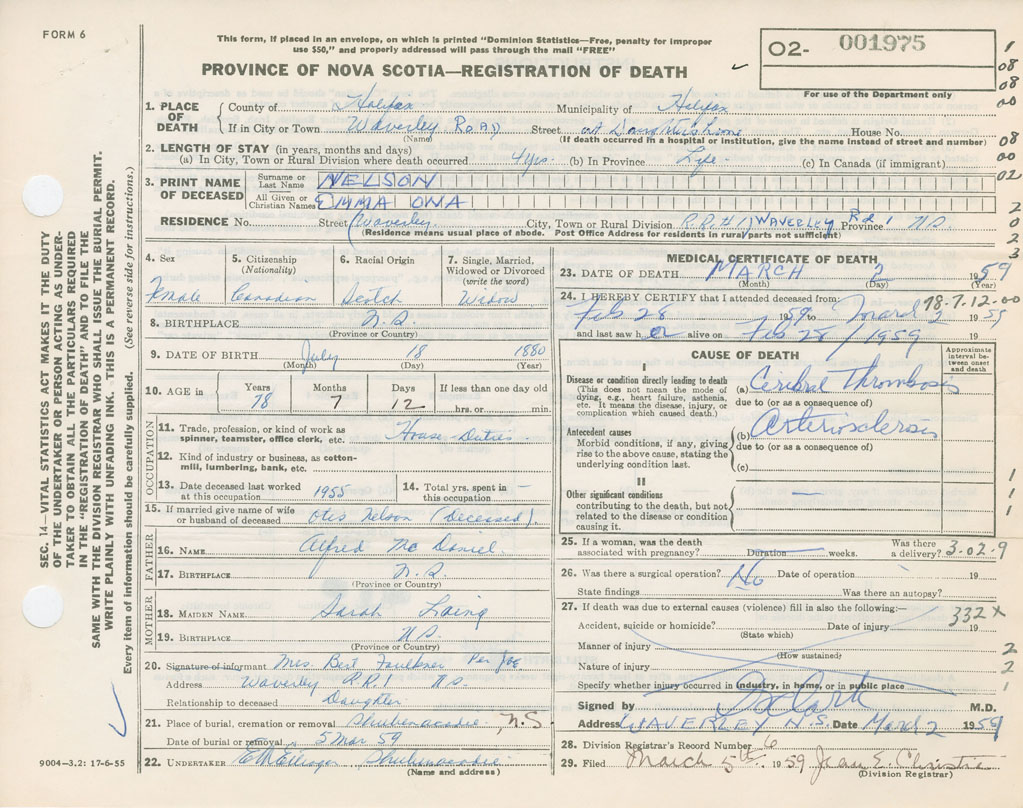 FORM 6
This form, if placed in an envelope, on which is printed "Dominion Statistics—Free, penalty for improper
use $50," and properly addressed will pass through the mail "FREE"
PROVINCE OF NOVA SCOTIA—REGISTRATION OF DEATH
O2- 001975
For use of the Department only
1
08
08
00
08
00
02
2
0
2
3
SEC. 14—VITAL STATISTICS ACT MAKES IT THE DUTY
OF THE UNDERTAKER OR PERSON ACTING AS UNDER-
TAKER TO OBTAIN ALL THE PARTICULARS REQUIRED
IN THE "REGISTRATION OF DEATH" AND TO FILE THE
SAME WITH THE DIVISION REGISTRAR WHO SHALL ISSUE THE BURIAL PERMIT.
WRITE PLAINLY WITH UNFADING INK. THIS IS A PERMANENT RECORD.
Every item of information should be carefully supplied. (See reverse side for instructions.)
1. PLACE OF DEATH
County of Halifax Municipality of Halifax
If in City or Town Waverley Road Street at House No.
(Name) (If death occurred in a hospital or institution, give the name instead of street and number)
2. LENGTH OF STAY (in years, months and days)
(a) In City, Town or Rural Division where death occurred 4 yrs. (b) In Province Life (c) In Canada (if immigrant)
3. PRINT NAME OF DECEASED
Surname or Last Name NELSON
All Given or Christian Names EMMA ONA
RESIDENCE No. Street (Waverley City, Town or Rural Division R.R.#1) WAVERLEY R.R.1 Province N.S.
(Residence means usual place of abode. Post Office Address for residents in rural parts not sufficient)
4. Sex
Female
5. Citizenship
(Nationality)
Canadian
6. Racial Origin
Scotch
7. Single, Married,
Widowed or Divorced
(write the word)
Widow
8. BIRTHPLACE N.S.
(Province or Country)
9. DATE OF BIRTH July 18 1880
(Month) (Day) (Year)
10. AGE in
Years Months Days If less than one day old
78 7 12 hrs. or min.
OCCUPATION
11. Trade, profession, or kind of work as
spinner, teamster, office clerk, etc. House-Duties
12. Kind of industry or business, as cotton-
mill, lumbering, bank, etc.
13. Date deceased last worked
at this occupation 1955
14. Total yrs. spent in
this occupation —
15. If married give name of wife
or husband of deceased Otis Nelson (deceased).
FATHER
16. NAME Alfred Mc Daniel
17. BIRTHPLACE N.S.
(Province or Country)
MOTHER
18. MAIDEN NAME Sarah Laing
19. BIRTHPLACE N.S.
(Province or Country)
20. Signature of informant Mrs. Bert Faulkner Per
Address Waverley R.R.1 N.S.
Relationship to deceased Daughter
21. Place of burial, cremation or removal Shubenacadie, N.S
Date of burial or removal 5 Mar 59
22. UNDERTAKER Shubenacadie
(Name and address)
9004—3.2: 17-6-55
MEDICAL CERTIFICATE OF DEATH
23. DATE OF DEATH MARCH 2 1959
(Month) (Day) (Year)
24. I HEREBY CERTIFY that I attended deceased from: 78-7-12-00
Feb 28 1959 to March 2 1959
and last saw her alive on Feb 28 / 1959
CAUSE OF DEATH
Approximate interval between onset and death
I
Disease or condition directly leading to death
(This does not mean the mode of
dying, e.g., heart failure, asthenia,
etc. It means the disease, injury, or
complication which caused death.)
(a) Ceribral Thrombosis
due to (or as a consequence of)
Antecedent causes
Morbid conditions, if any, giving
rise to the above cause, stating the
underlying condition last.
(b) Arteriosclerosis
due to (or as a consequence of)
(c)
II
Other significant conditions
contributing to the death, but not
related to the disease or condition
causing it.
—
1
1
1
25. If a woman, was the death
associated with pregnancy? Duration weeks. Was there a delivery? 3-02-9
26. Was there a surgical operation? No Date of operation 19
State findings Was there an autopsy?
27. If death was due to external causes (violence) fill in also the following:— 332X
Accident, suicide or homicide? Date of injury 19
(State which)
Manner of injury 2
(How sustained)
Nature of injury 2
Specify whether injury occurred in industry, in home, or in public place 1
Signed by M.D.
Address WAVERLEY N.S. Date March 2 1959
28. Division Registrar's Record Number 6
29. Filed March 5th 1959 Jean E. Christie
(Division Registrar)